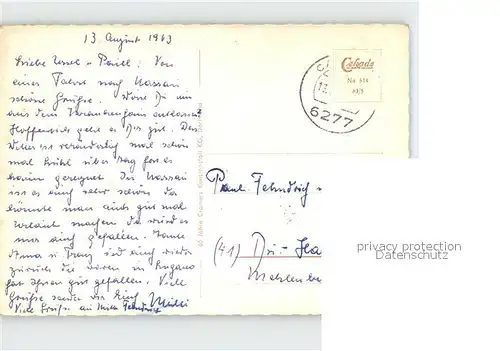 13. August 1963
Liebe Ursel + Paul: Von
einer Fahrt nach Nassau
schöne Grüße. Wäre Du nun
aus dem Krankenhaus entlassen
Hoffentlich geht es Dir gut. Das
Wetter ist veränderlich mal schön
mal kühl über Tag hat es
kaum geregnet. In Nassau
ist es auch sehr schön da
könnte man auch gut mal
Urlaub machen da würd es
mir auch gefallen. Tante
Anna u. Franz sind auch wieder
zurück die waren in Lugano
hat Ihnen gut gefallen. Viele
Grüße sendet Dir Euch Milli
Viele Grüße an
Cekade
No 614
6277
60 Jahre Cramers Kunstanstalt KG, Dortmund
Paul Fehndrich u
(41) Du-Ha
Mehlenbe
privacy protection
watermark
DunkelRoth.com